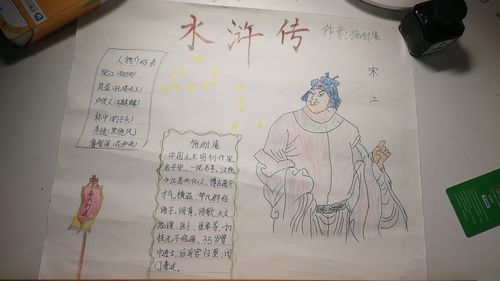 水浒传
作者:施耐庵
宋
江
人物介绍表
宋江(及时雨)
晁盖(托塔天王)
卢俊义(玉麒麟)
林冲(豹子头)
李逵(黑旋风)
鲁智深(花和尚)
施耐庵
中国元末明初作家
名子安,一说名耳,汉族
今江苏兴化人,博古通今
才气横溢,举凡群经
诸子,词章,诗歌,天文
地理,医卜,星象等,一切
技术无不经通,35岁曾
中进士,后弃官归里,闭
门著述。
替天行道